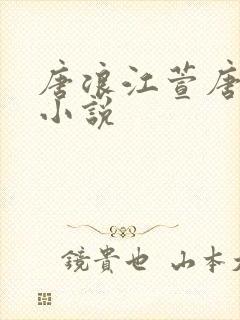 唐浪江萱唐
小説
鏡貴也 山本